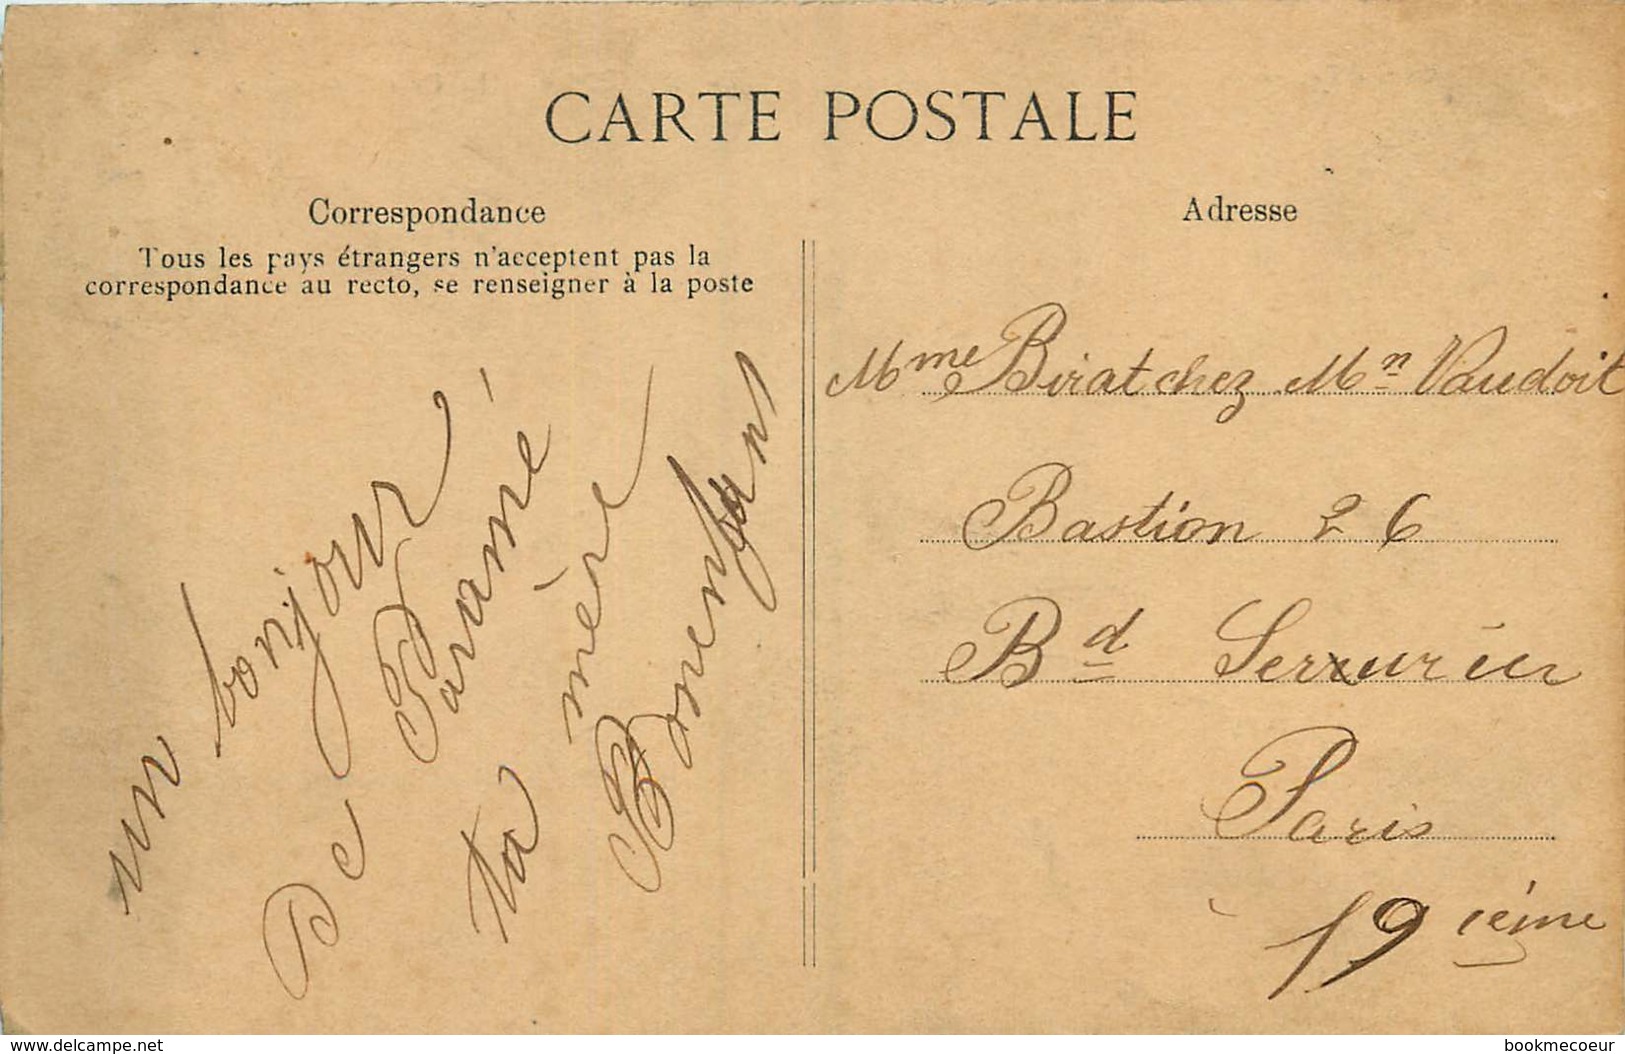 CARTE POSTALE
Correspondance
Tous les pays étrangers n'acceptent pas la
correspondance au recto, se renseigner à la poste
un bonjour
De Paramé
ta mère
Bonenfant
Adresse
Mme Birat chez Mn Vaudoit
Bastion 26
Bd Serrurier
Paris
19 ième
www.delcampe.net
bookmecoeur